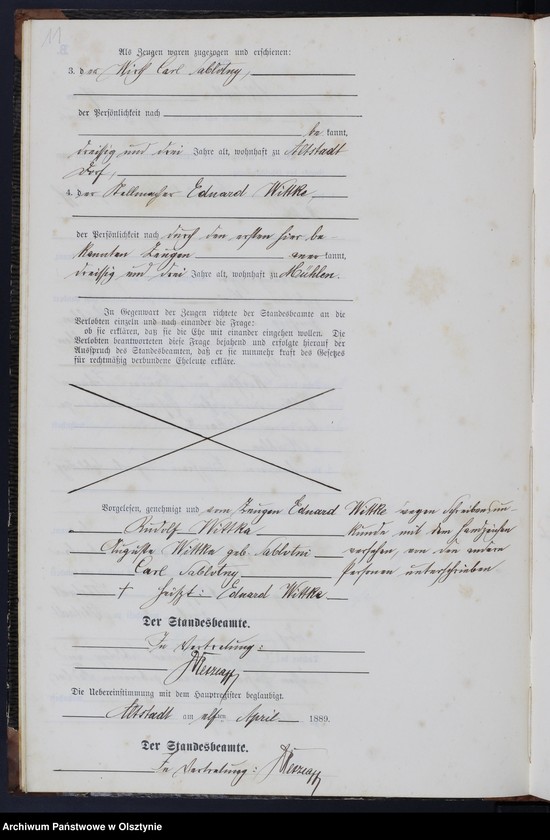 11
Als Zeugen waren zugezogen und erschienen:
3. der Wirth Carl Sablotny,
der Persönlichkeit nach
be kannt,
dreißig und drei Jahre alt, wohnhaft zu Altstadt
Dorf,
4. der Stellmacher Eduard Wittke
der Persönlichkeit nach durch den ersten hier be
kannten Zeugen aner kannt,
dreißig und drei Jahre alt, wohnhaft zu Mühlen.
In Gegenwart der Zeugen richtete der Standesbeamte an die
Verlobten einzeln und nach einander die Frage:
ob sie erklären, daß sie die Ehe mit einander eingehen wollen. Die
Verlobten beantworteten diese Frage bejahend und erfolgte hierauf der
Ausspruch des Standesbeamten, daß er sie nunmehr kraft des Gesetzes
für rechtmäßig verbundene Eheleute erkläre.
Vorgelesen, genehmigt und vom Zeugen Eduard Wittke wegen Schreibensun
Rudolf Wittka kunde mit dem Handzeichen
Auguste Wittka geb. Sablotni versehen, von den andern
Carl Sablotny Personen unterschrieben
† heißt: Eduard Wittke
Der Standesbeamte.
In Vertretung:
Die Uebereinstimmung mit dem Hauptregister beglaubigt.
Altstadt am elften April 1889.
Der Standesbeamte.
In Vertretung:
Archiwum Państwowe w Olsztynie